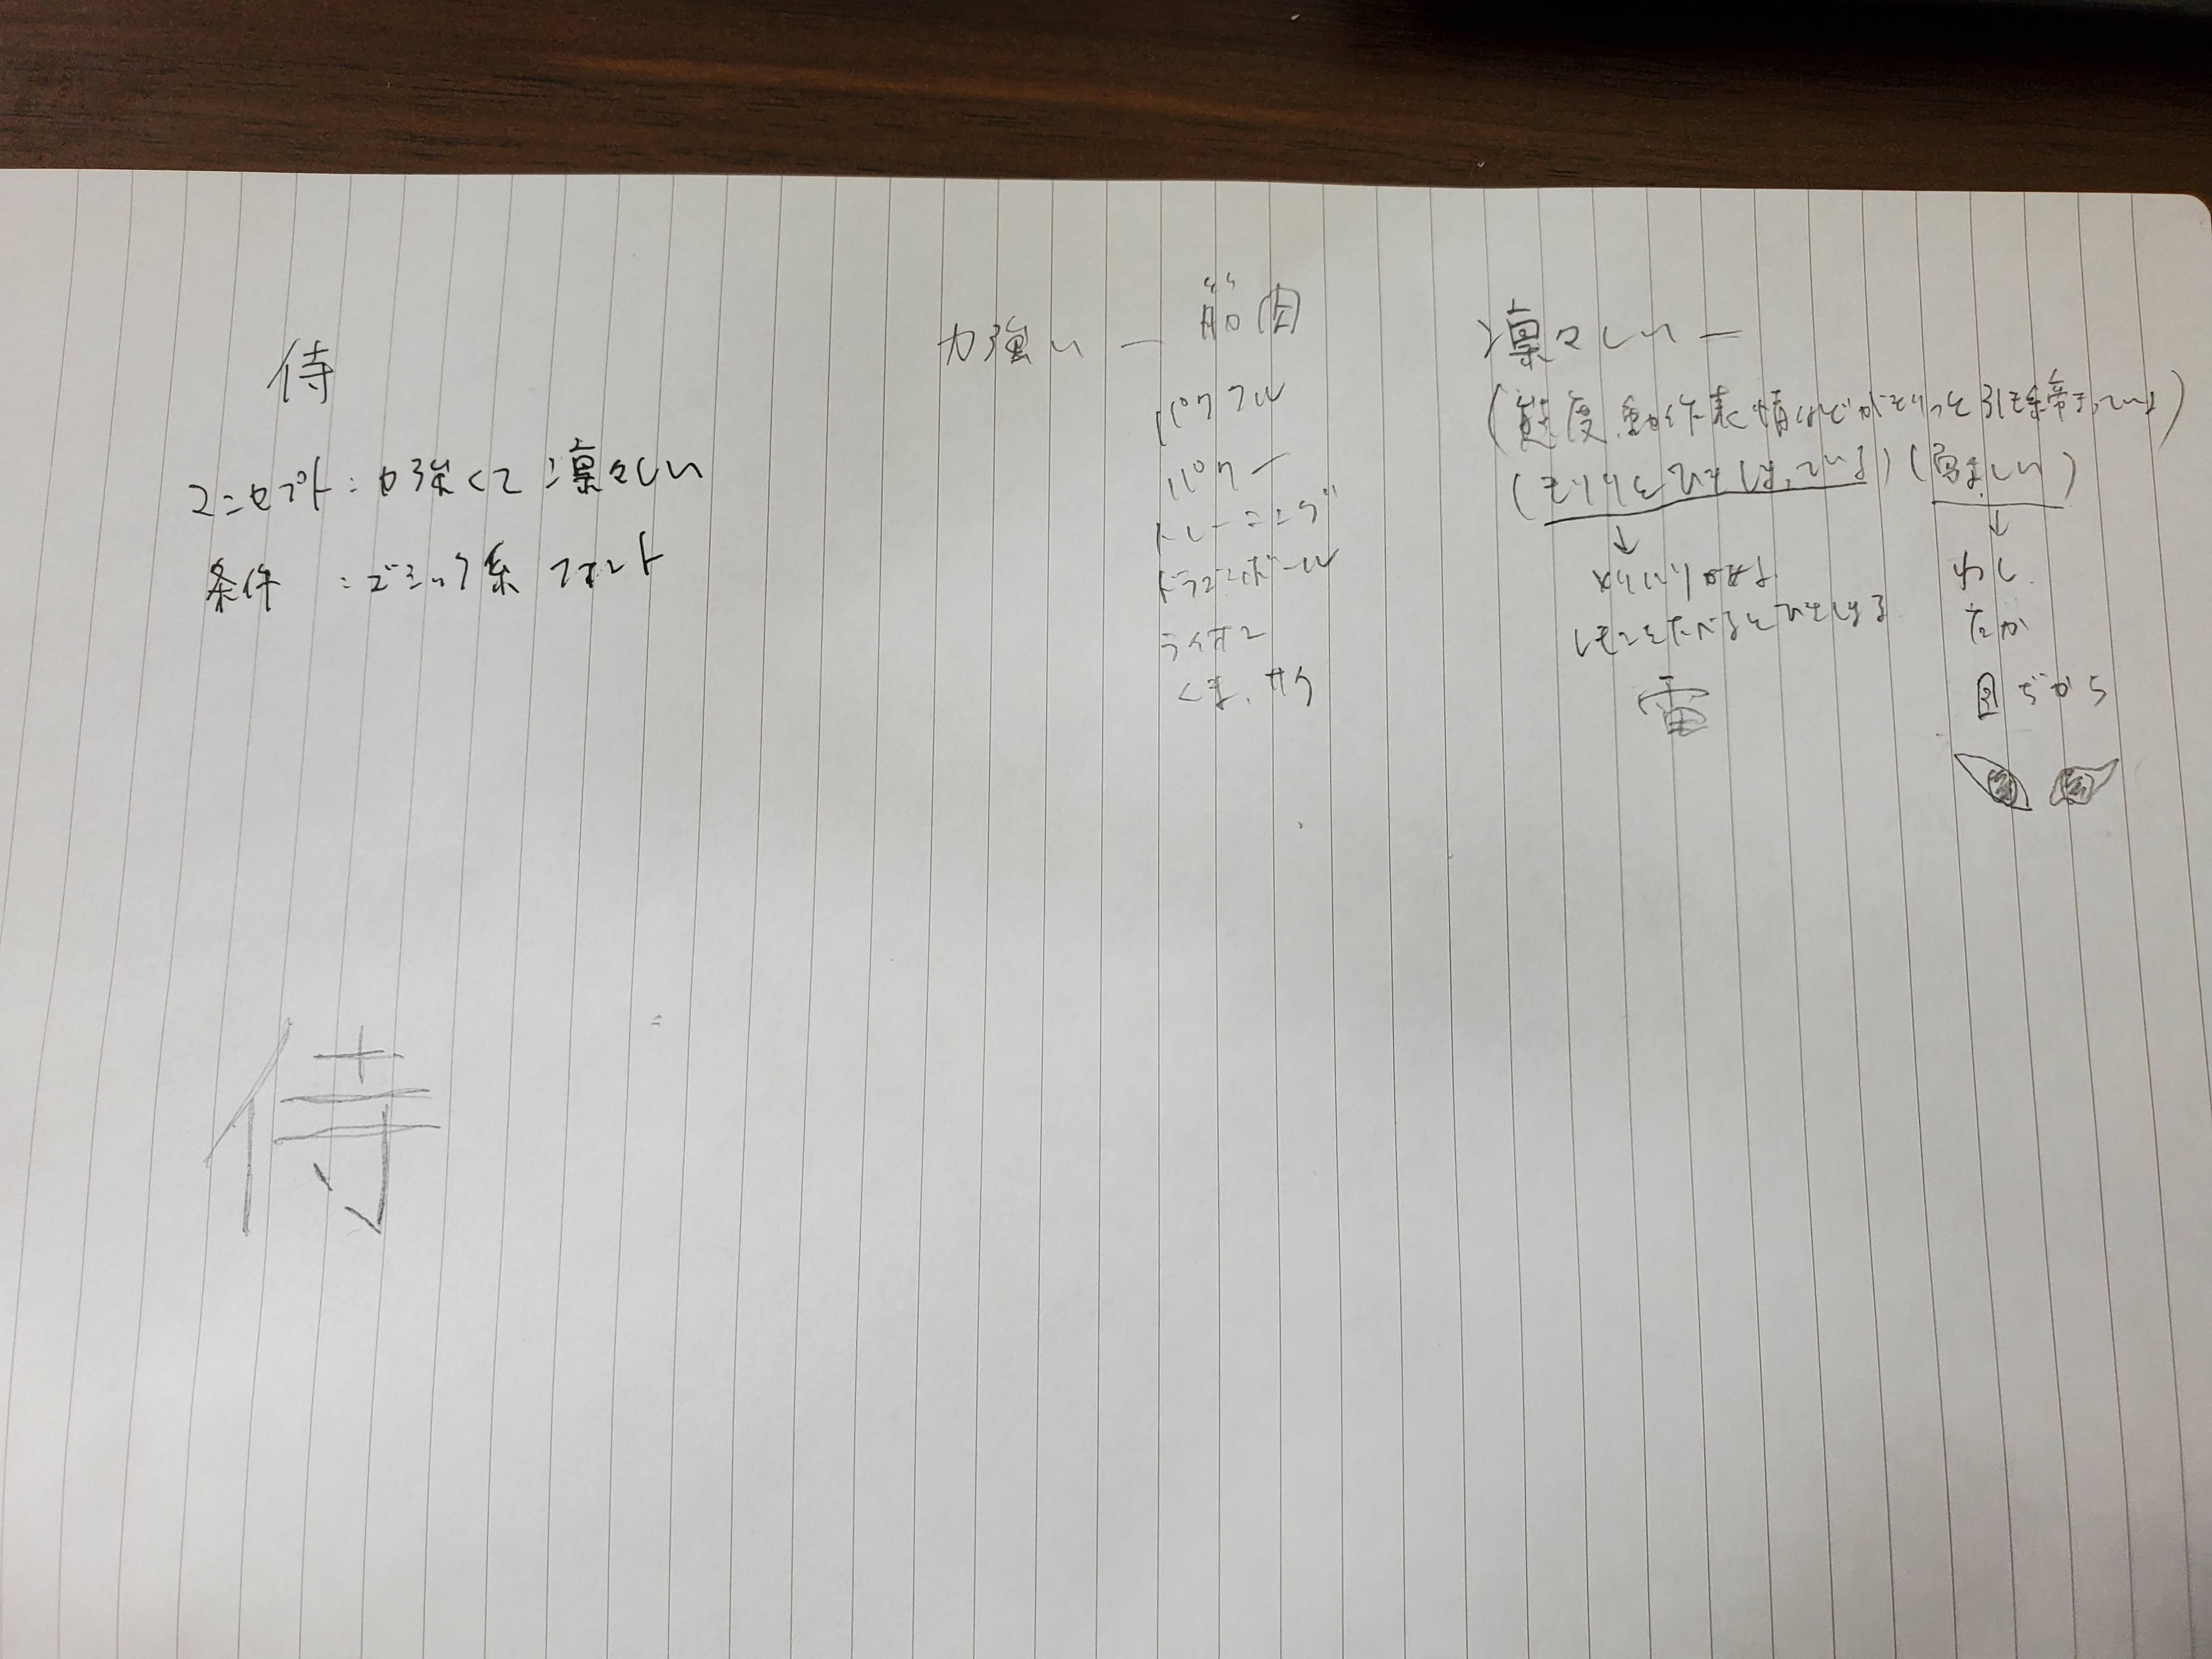 侍
コンセプト：力強くて凛々しい
条件　：ゴシック系フォント
力強い ー 筋肉
パワフル
パワー
トレーニング
ドラゴンボール
ライオン
くま、サイ
凛々しい ー
(態度、動作、表情などがきりっと引き締まっている)
(きりりとひきしまっている) (勇ましい)
↓
↓
レモンをたべるとひきしまる
雷
わし
たか
目ぢから
侍